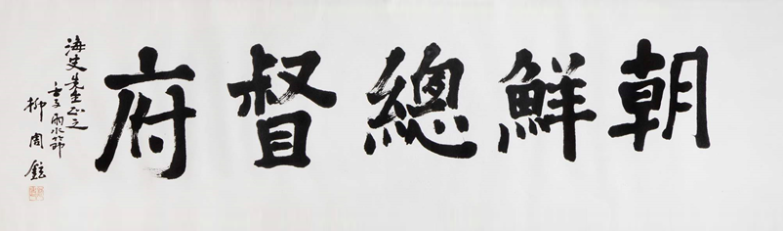 朝鮮總督府
海史先生正之
壬子雨水於邱
柳周鉉